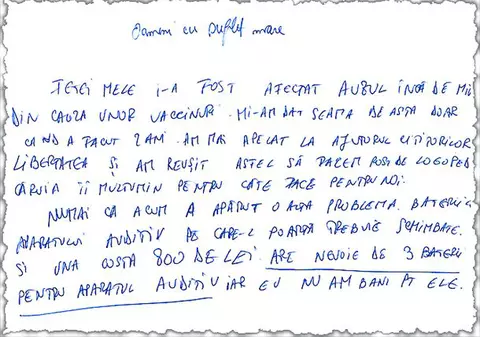 Oameni cu suflet mare
FETEI MELE I-A FOST AFECTAT AUZUL ÎNCĂ DE MICĂ
DIN CAUZA UNOR VACCINURI. MI-AM DAT SEAMA DE ASTA DOAR
CÂND A FĂCUT 2 ANI. AM MAI APELAT LA AJUTORUL CITITORILOR
LIBERTATEA ȘI AM REUȘIT ASTFEL SĂ FACEM ROST DE LOGOPED
CĂRUIA ÎI MULȚUMIM PENTRU CÂTE FACE PENTRU NOI.
NUMAI CĂ ACUM A APĂRUT O ALTĂ PROBLEMĂ. BATERIILE
APARATULUI AUDITIV PE CARE-L POARTĂ TREBUIE SCHIMBATE
ȘI UNA COSTĂ 800 DE LEI. ARE NEVOIE DE 3 BATERII
PENTRU APARATUL AUDITIV IAR EU NU AM BANI PT ELE.